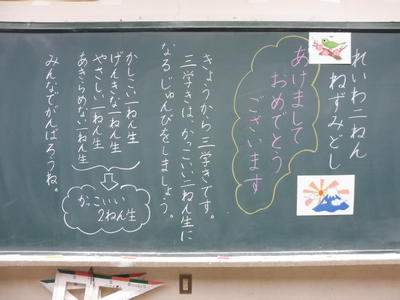 れいわ二ねん
ねずみどし
あけまして
おめでとう
ございます
きょうから三学きです。
三学きは、かっこいい二ねん生に
なるじゅんびをしましょう。
かしこい一ねん生
げんきな一ねん生
やさしい一ねん生
あきらめない一ねん生
かっこいい
2ねん生
みんなでがんばろうね。